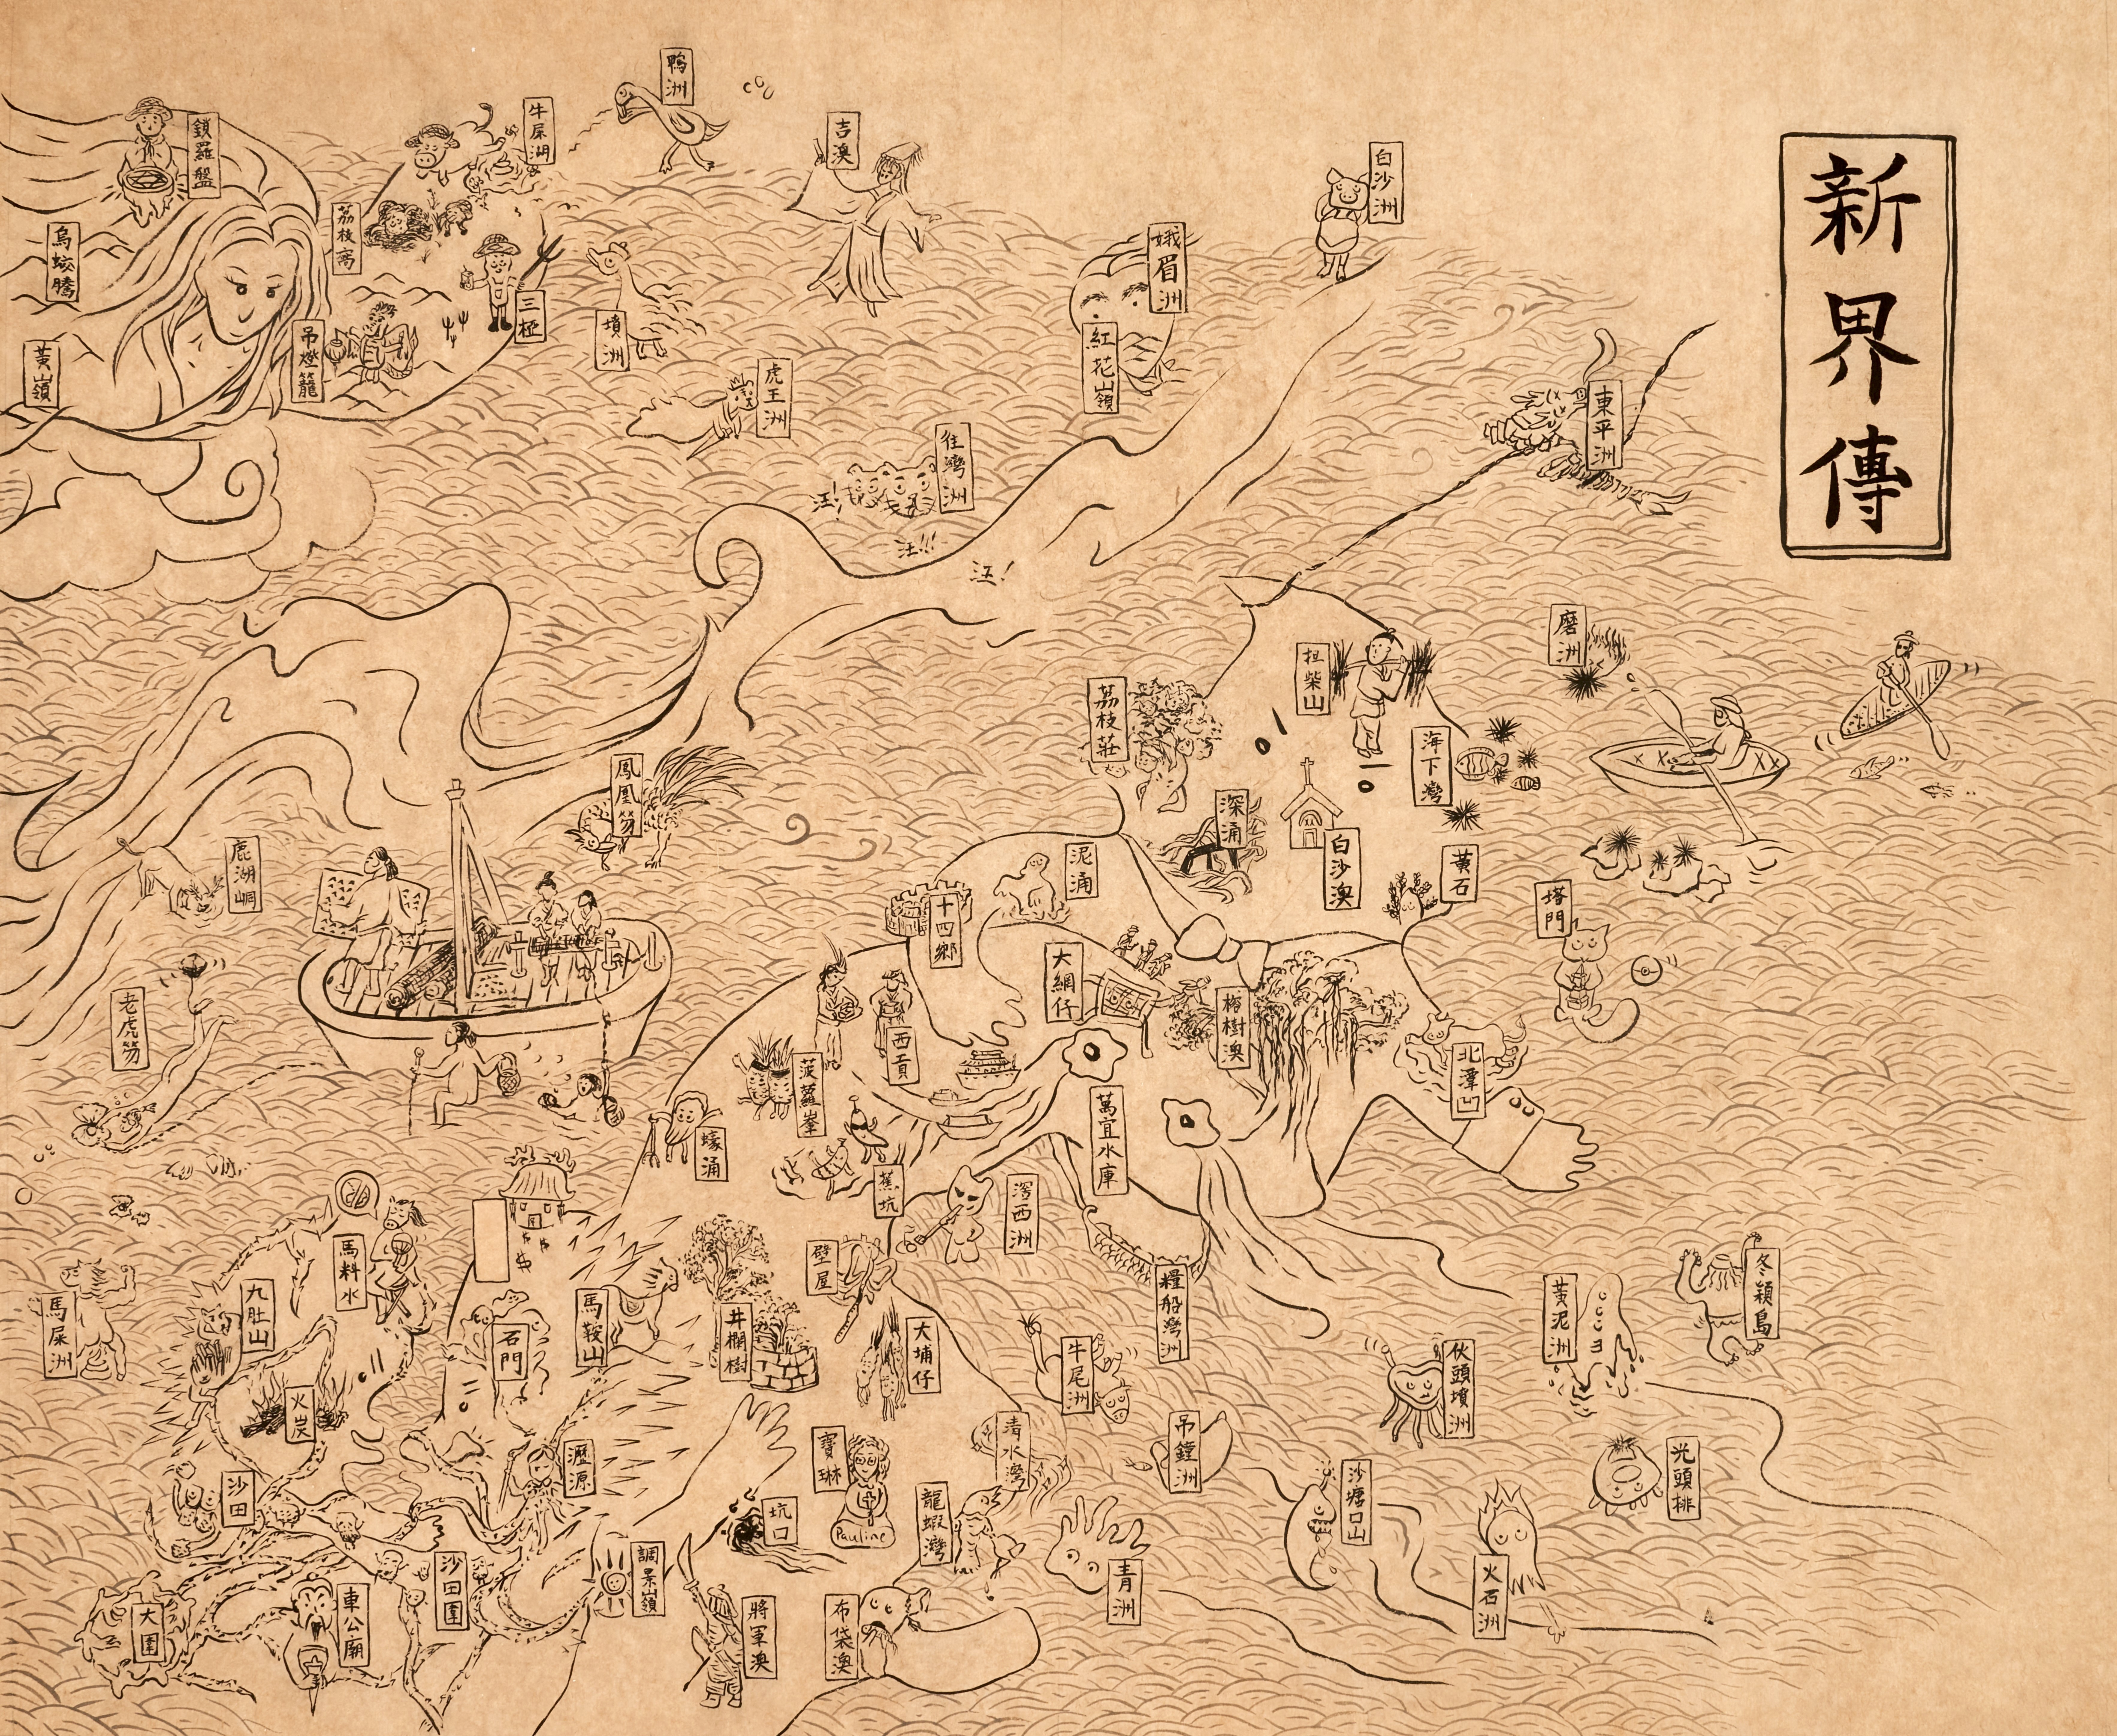 新界傳
鴨洲
牛屎湖
鎖羅盤
吉澳
白沙洲
荔枝窩
烏蛟騰
娥眉洲
三椏
墳洲
吊燈籠
黃嶺
紅花嶺
虎王洲
東平洲
往灣洲
汪!
汪!!!
汪!
磨洲
担柴山
荔枝莊
海下灣
鳳凰笏
深涌
白沙澳
黃石
泥涌
鹿湖峒
塔門
十四鄉
大網仔
榕樹澳
老虎笏
西貢
北潭凹
菠蘿輋
萬宜水庫
蠔涌
蕉坑
滘西洲
馬料水
壁屋
糧船灣洲
冬穎島
九肚山
馬屎洲
黃泥洲
馬鞍山
石門
井欄樹
大埔仔
牛尾洲
伙頭墳洲
火炭
清水灣
吊鐘洲
寶琳
光頭排
瀝源
沙田
沙塘口山
坑口
龍蝦灣
Pauline
調景嶺
沙田圍
火石洲
青洲
車公廟
大圍
將軍澳
布袋澳